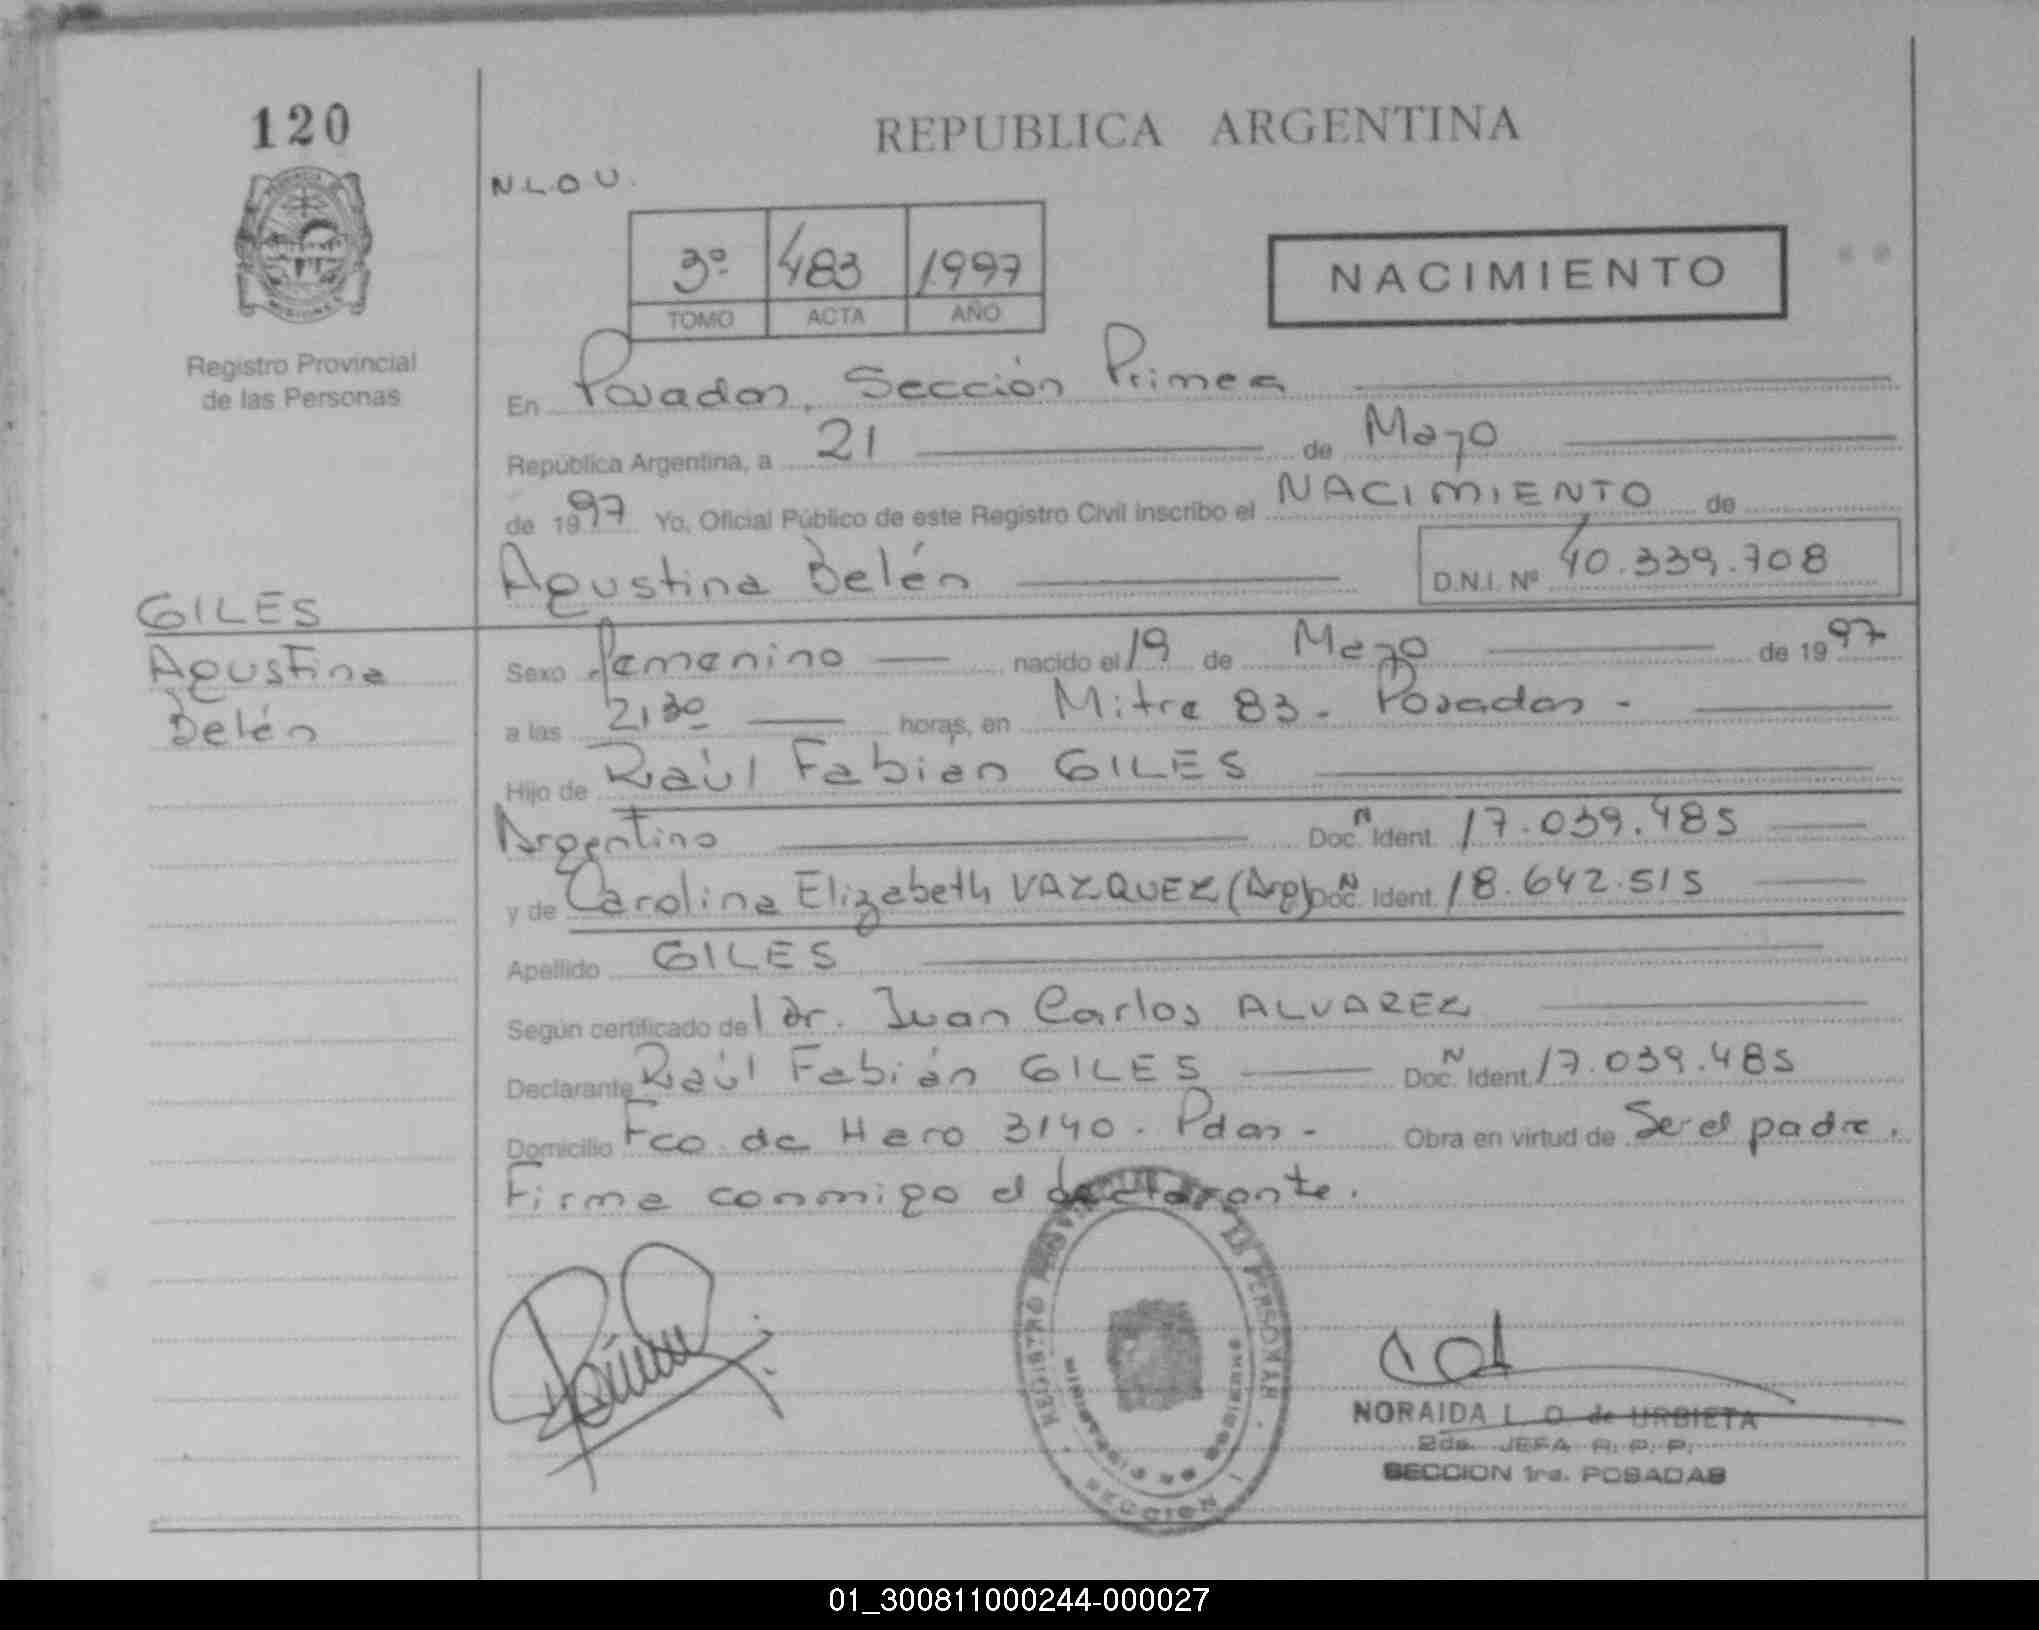 120
REPUBLICA ARGENTINA
N.L.O.U.
3º 483 1997
TOMO ACTA AÑO
NACIMIENTO
Registro Provincial
de las Personas
En Posadas, Sección Primera
República Argentina, a 21 de Mayo
de 1997 Yo, Oficial Público de este Registro Civil inscribo el NACIMIENTO de
Agustina Belén D.N.I. Nº 40.339.708
GILES
Agustina
Belén
Sexo femenino nacido el 19 de Mayo de 1997
a las 21,30 horas, en Mitre 83 - Posadas -
Hijo de Raúl Fabian GILES
Argentino Doc. N Ident. 17.039.485
y de Carolina Elizabeth VAZQUEZ (Arg) Doc. N Ident. 18.642.515
Apellido GILES
Según certificado del Dr. Juan Carlos ALVAREZ
Declarante Raúl Fabián GILES Doc. N Ident. 17.039.485
Domicilio Fco. de Haro 3140 - Pdas - Obra en virtud de Ser el padre.
Firma conmigo el declarante.
NORAIDA L. O. de URBIETA
2da. JEFA R. P. P.
SECCION 1ra. POSADAS
SECCION I
01_300811000244-000027